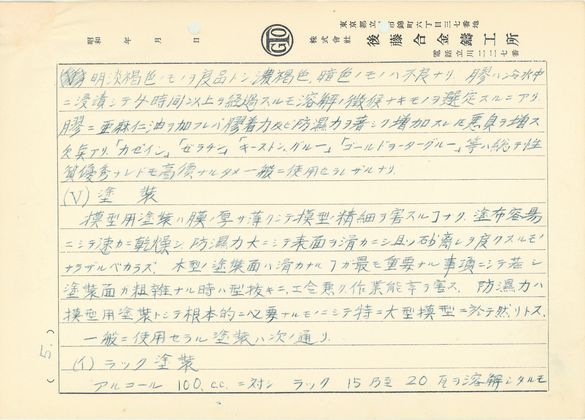 東京都立川市錦町六丁目三七番地
株式會社 後藤合金鑄工所
電話立川二二二七番
昭和 年 月 日
GTO
明淡褐色ノモノヲ良品トシ濃褐色、暗色ノモノハ不良ナリ 膠ハ冷水中
ニ浸漬シテ24時間以上ヲ経過スルモ溶解ノ徴候ナキモノヲ選定スルニアリ
膠ニ亜麻仁油ヲ加フレバ膠着力及ビ防濕力ヲ著シク増加スルモ悪臭ヲ増ス
欠点アリ、「カゼイン」「ゼラチン」「キーストングルー」「ゴールドラーターグルー」等ハ総テ性
質優秀ナレドモ高價ナルタメ一般ニ使用セラレザルナリ.
(V) 塗 装
模型用塗装ハ膜ノ厚サ薄クシテ模型ノ精細ヲ害スルコナク、塗布容易
ニシテ速カニ乾燥シ、防濕力大ニシテ表面ヲ滑カニシ且ツ砂離レヲ良クスルモノ
ナラザルベカラズ. 木型ノ塗装面ハ滑カナルコガ最モ重要ナル事項ニシテ若シ
塗装面ガ粗雑ナル時ハ型抜キニ、工合悪ク、作業能率ヲ害ス. 防濕力ハ
模型用塗装トシテ根本的ニ必要ナルモノニシテ特ニ大型模型ニ於テ然リトス.
一般ニ使用セラル塗装ハ次ノ通リ.
(イ) ラック塗装
アルコール 100.c.c. ニ対シ ラック 15 乃至 20 瓦ヲ溶解シタルモ
(5.)